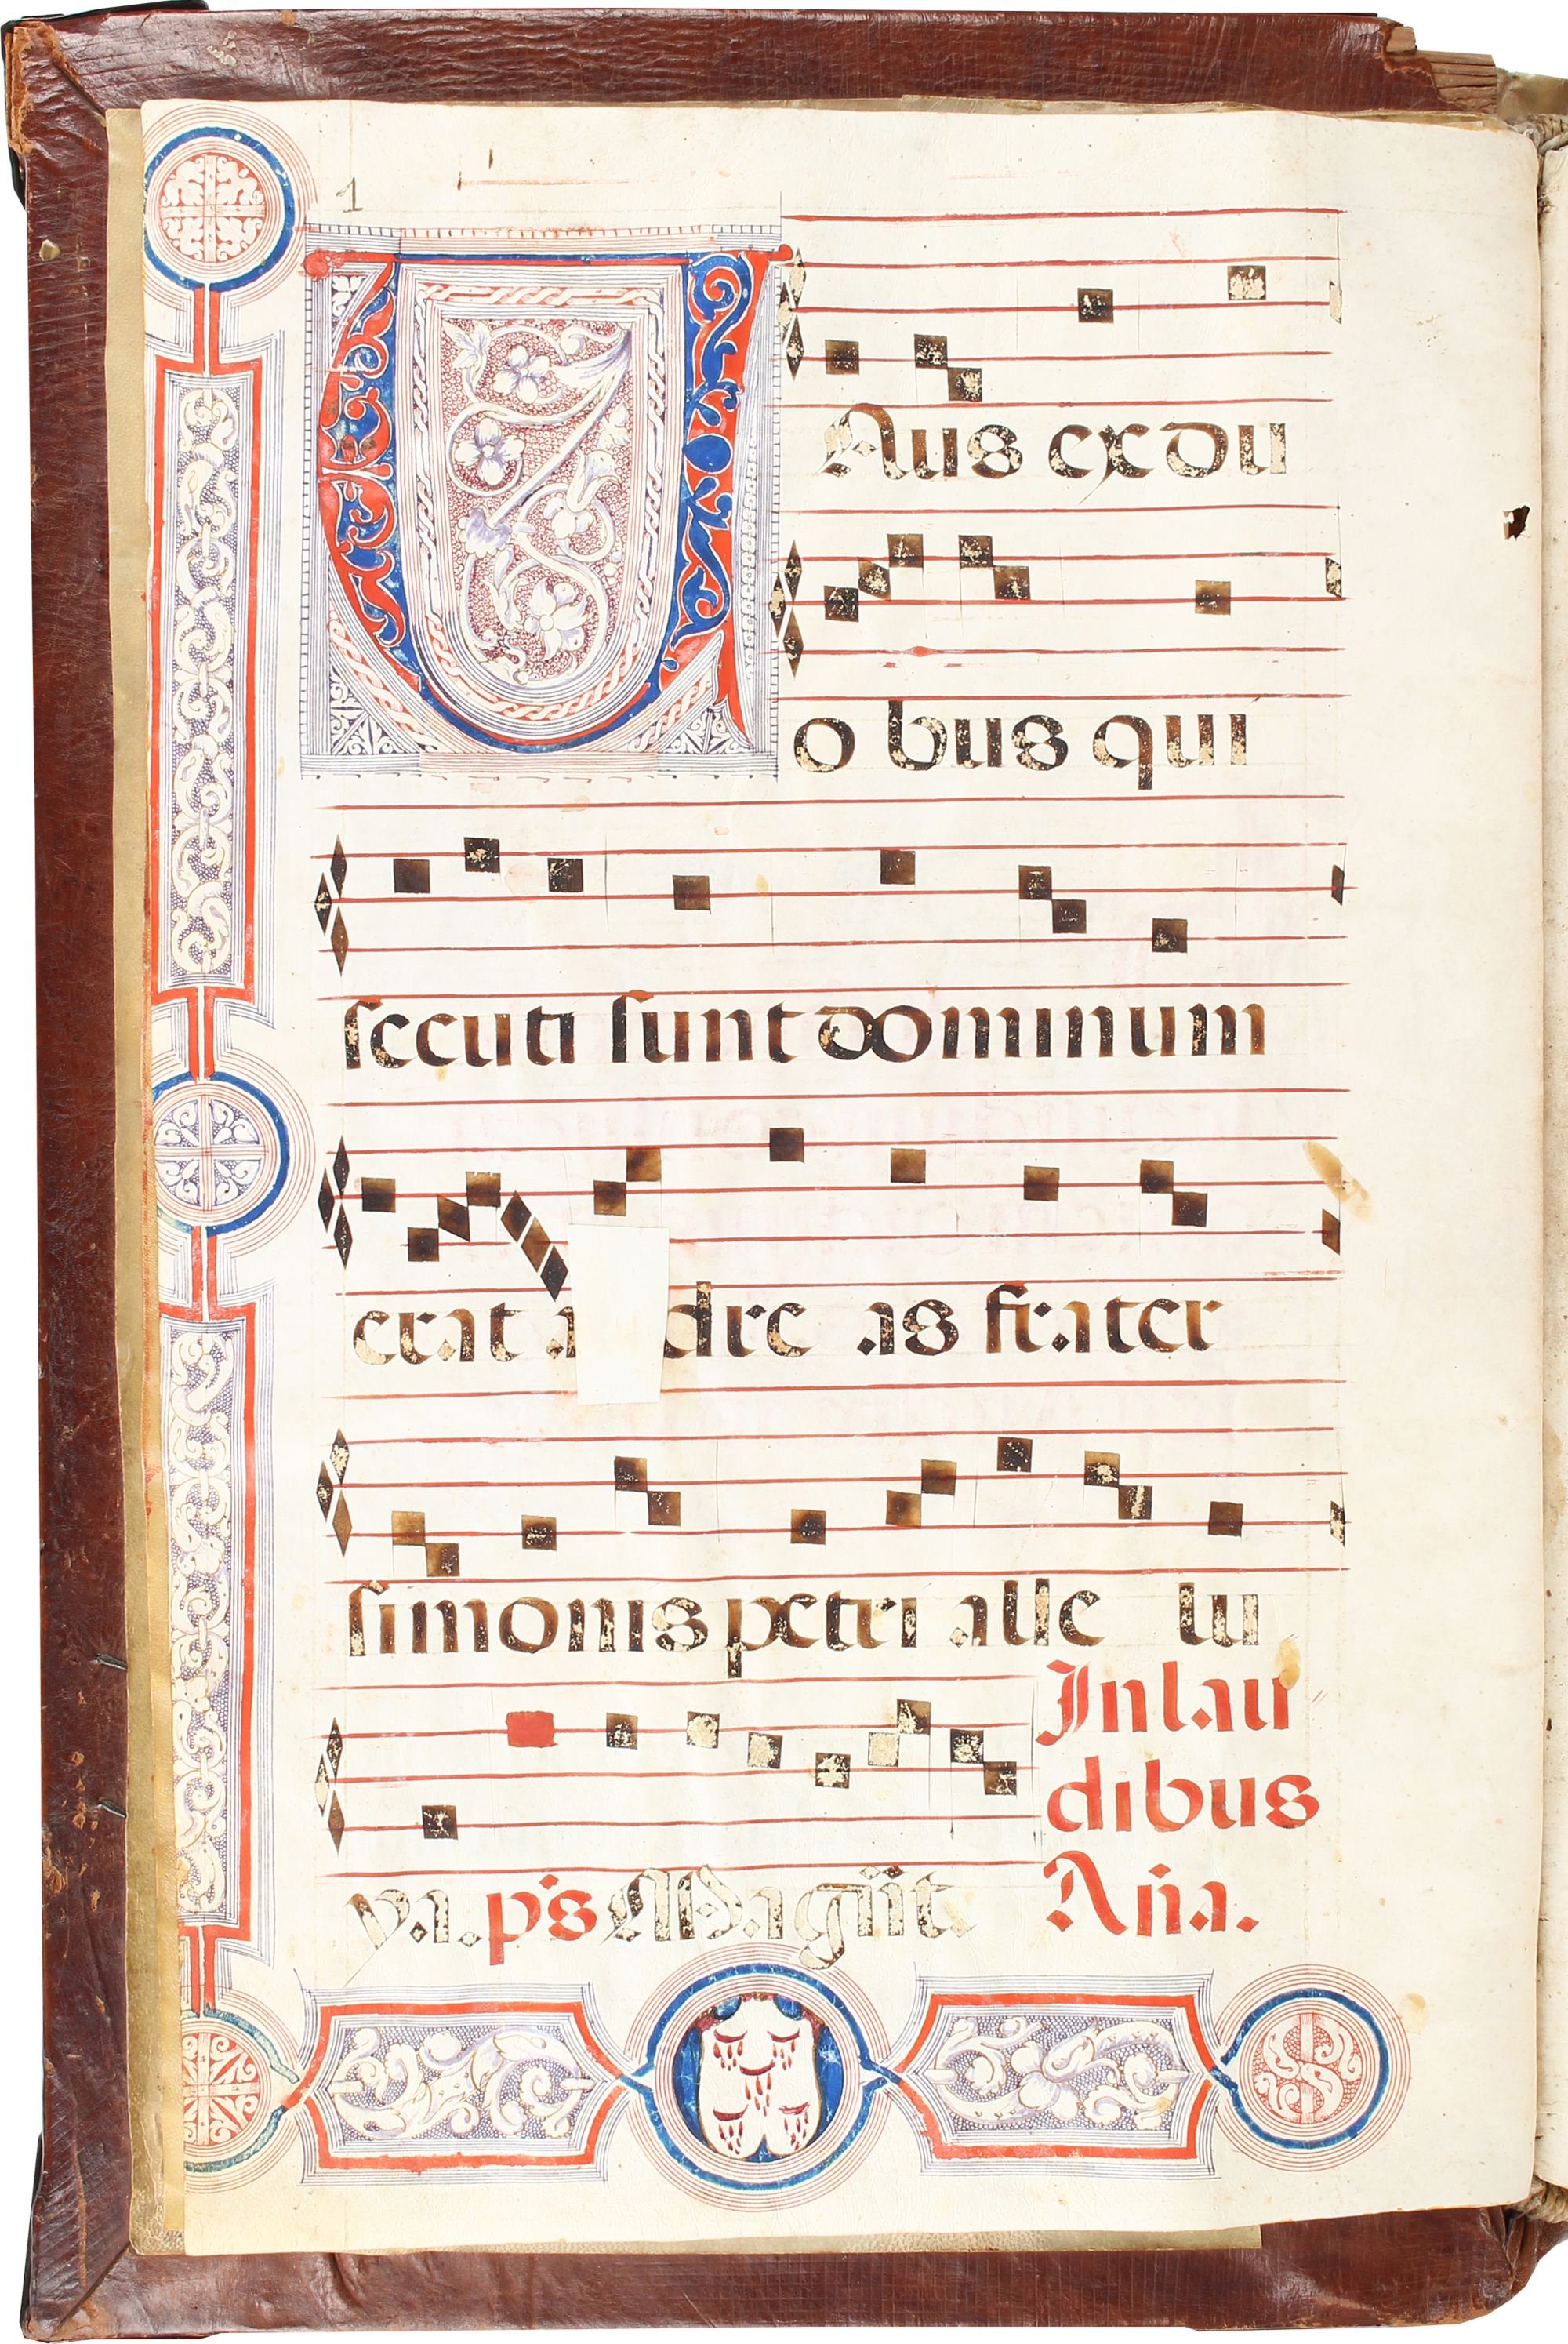 1
UAus ex du
o bus qui
secuti sunt dominum
erat a dre as frater
simonis petri alle lu
In lau
dibus
ya. p̃s Magñit. Añа.